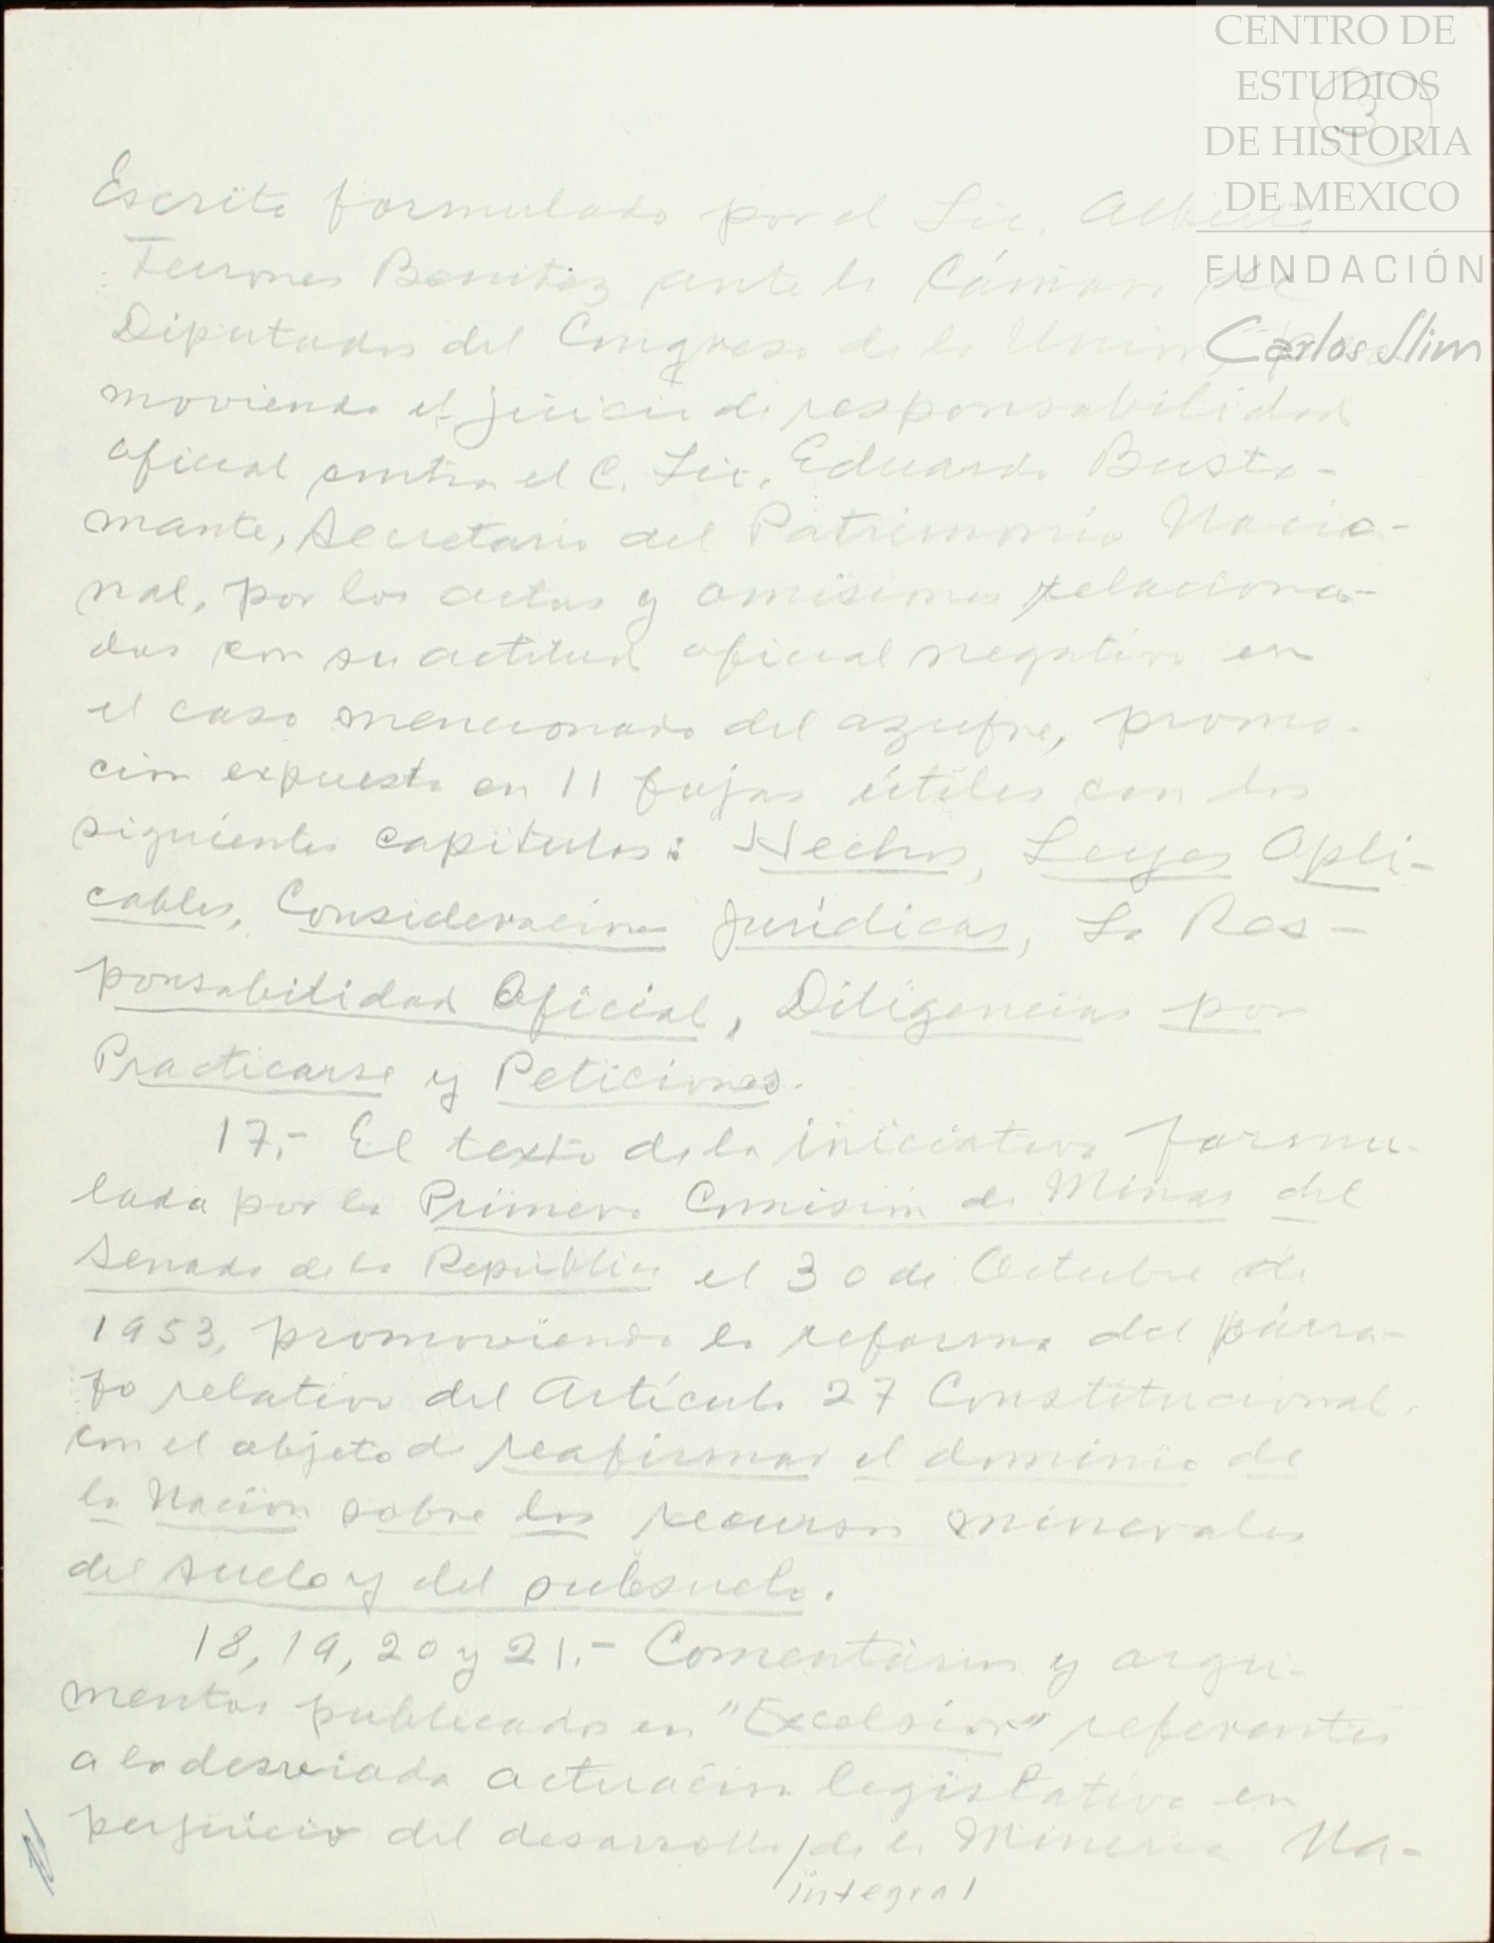 CENTRO DE
ESTUDIOS
DE HISTORIA
DE MEXICO
FUNDACIÓN
Carlos Slim
3
Escrito formulado por el Lic. Alberto
Terrones Benitez ante la Cámara de
Diputados del Congreso de la Unión,
moviendo el juicio de responsabilidad
oficial contra el C. Lic. Eduardo Busta-
mante, Secretario del Patrimonio Nacio-
nal, por los actos y omisiones relaciona-
dos con su actitud oficial negativa en
el caso mencionado del azufre, promo-
ción expuesta en 11 fojas útiles con los
siguientes capitulos: Hechos, Leyes Apli-
cables, Consideraciones Jurídicas, La Res-
ponsabilidad Oficial, Diligencias por
Practicarse y Peticiones.
17.- El texto de la iniciativa formu-
lada por la Primera Comisión de Minas del
Senado de la República el 30 de Octubre de
1953, promoviendo la reforma del párra-
fo relativo del Artículo 27 Constitucional,
con el objeto de reafirmar el dominio de
la Nación sobre los recursos minerales
del suelo y del subsuelo.
18, 19, 20 y 21.- Comentarios y argu-
mentos publicados en "Excelsior" referentes
a la desviada actuación legislativa en
perjuicio del desarrollo / de la Minería Na-
integral